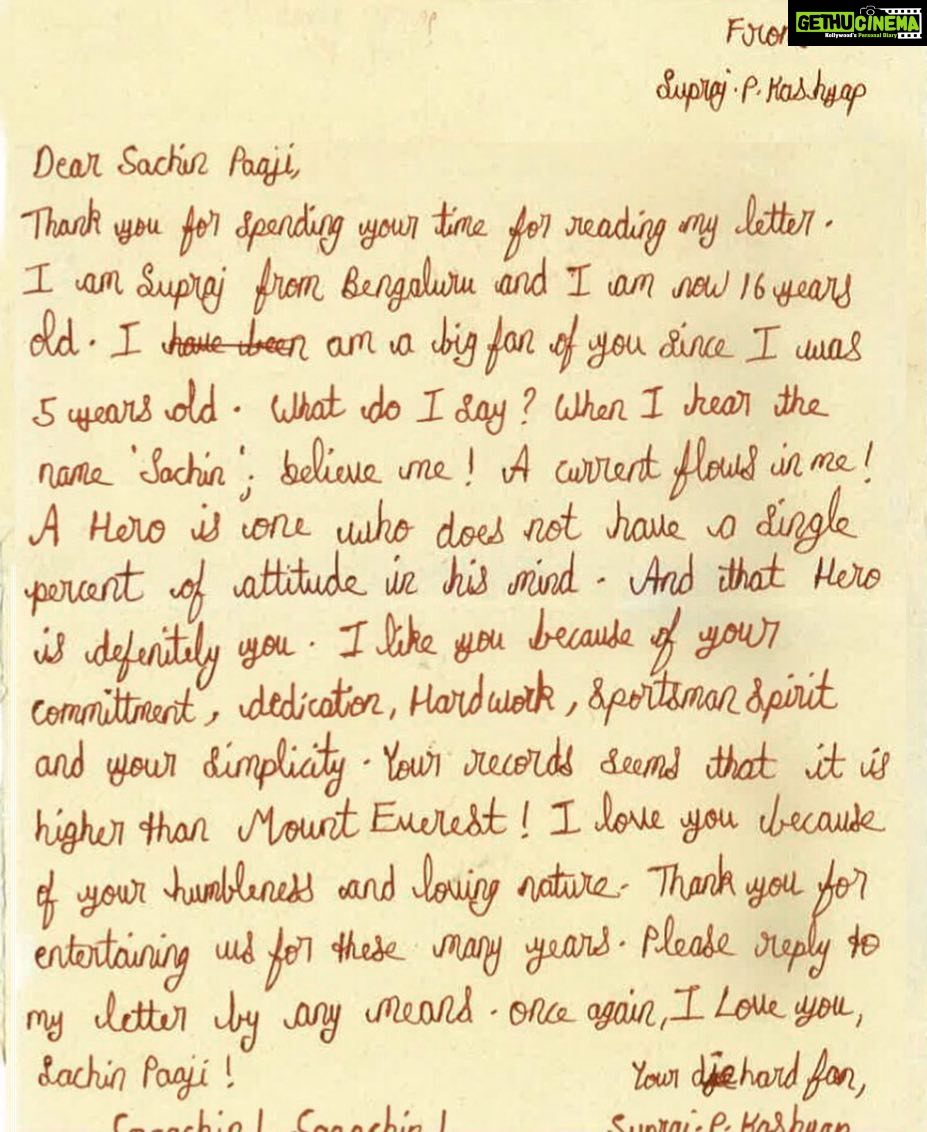 GETHUCINEMA
Kollywood's Personal Diary
From
Supraj. P. Kashyap
Dear Sachin Paaji,
Thank you for spending your time for reading my letter.
I am Supraj from Bengaluru and I am now 16 years
old. I have been am a big fan of you since I was
5 years old. What do I say? When I hear the
name 'Sachin'; believe me! A current flows in me!
A Hero is one who does not have a single
percent of attitude in his mind. And that Hero
is defenitely you. I like you because of your
committment, dedication, Hardwork, Sportsman Spirit
and your simplicity. Your records seems that it is
higher than Mount Everest! I love you because
of your humbleness and loving nature. Thank you for
entertaining us for these many years. Please reply to
my letter by any means. once again, I Love you,
Sachin Paaji!
Your die hard fan,
Supraj. P. Kashyap